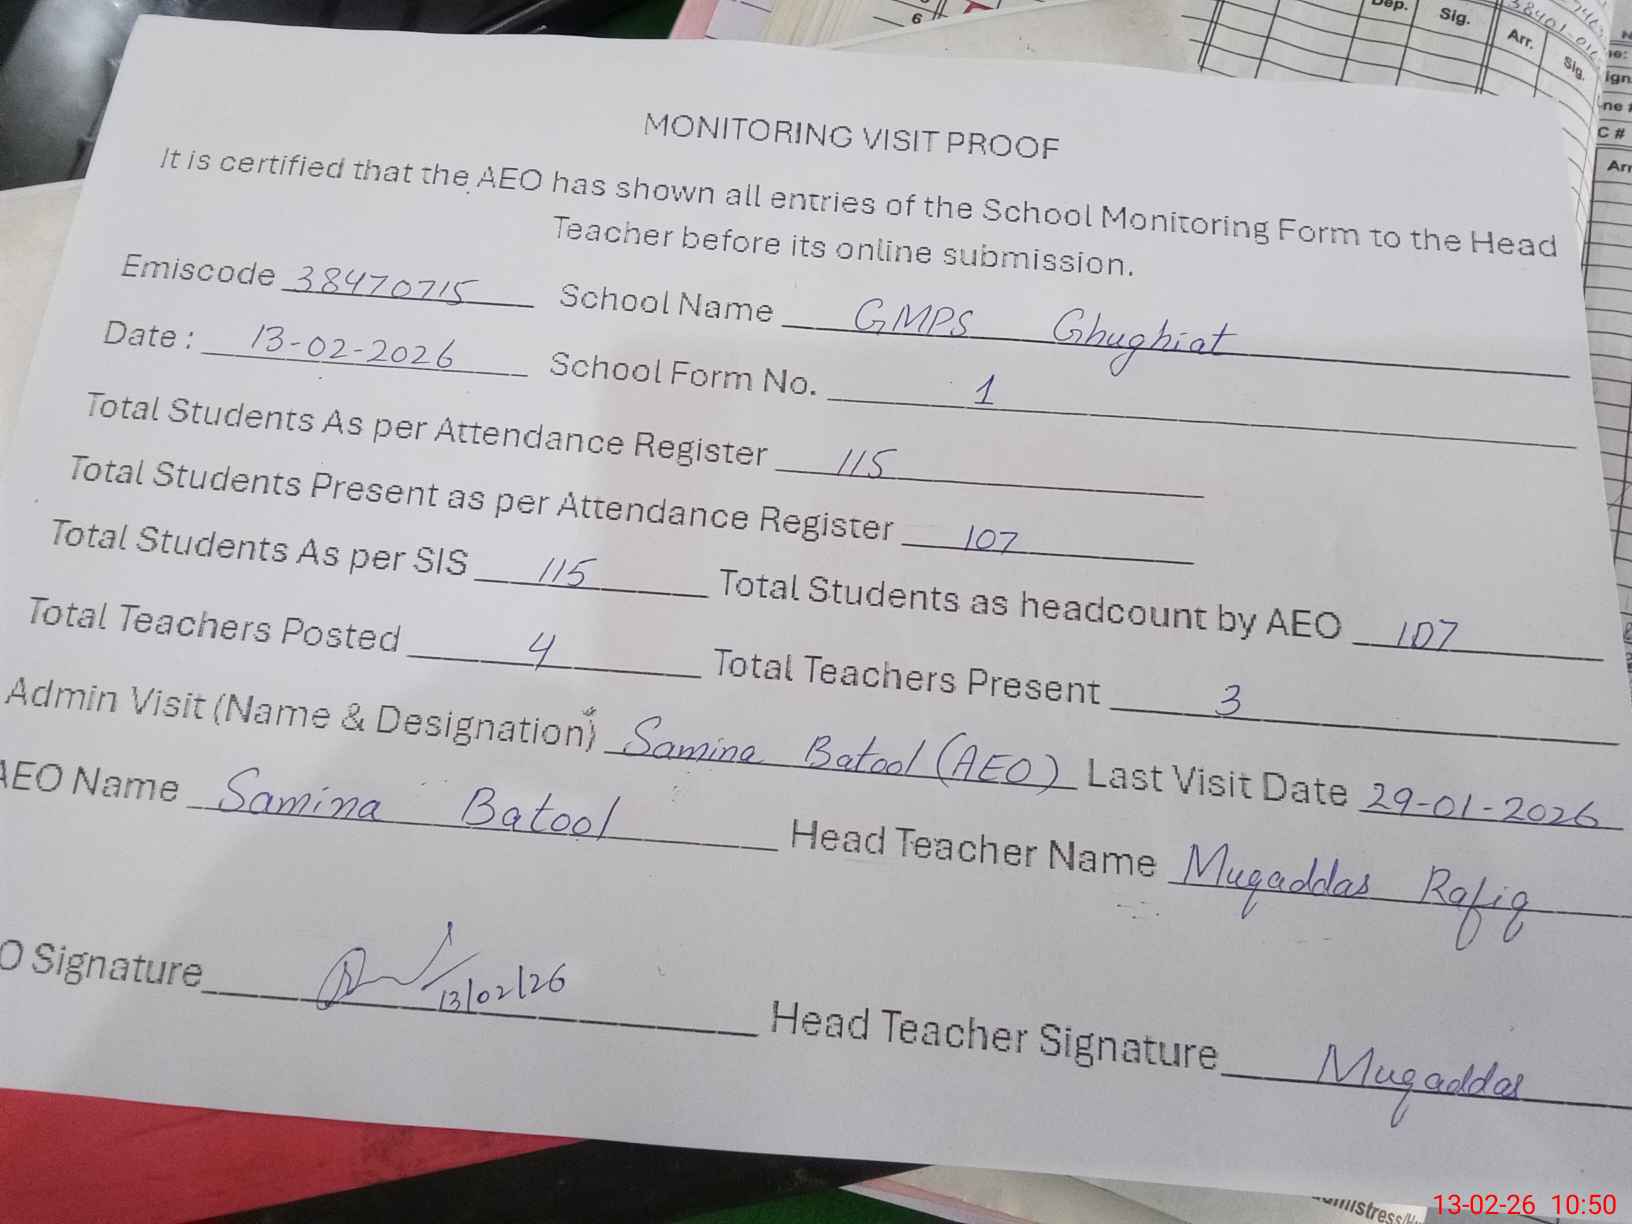 MONITORING VISIT PROOF
It is certified that the AEO has shown all entries of the School Monitoring Form to the Head
Teacher before its online submission.
Emiscode 38470715 School Name GMPS Ghughiat
Date : 13-02-2026 School Form No. 1
Total Students As per Attendance Register 115
Total Students Present as per Attendance Register 107
Total Students As per SIS 115 Total Students as headcount by AEO 107
Total Teachers Posted 4 Total Teachers Present 3
Admin Visit (Name & Designation) Samina Batool (AEO) Last Visit Date 29-01-2026
AEO Name Samina Batool Head Teacher Name Muqaddas Rafiq
O Signature 13/02/26 Head Teacher Signature Muqaddas
6
Dep. Sig. Arr. Sig.
C #
13-02-26 10:50